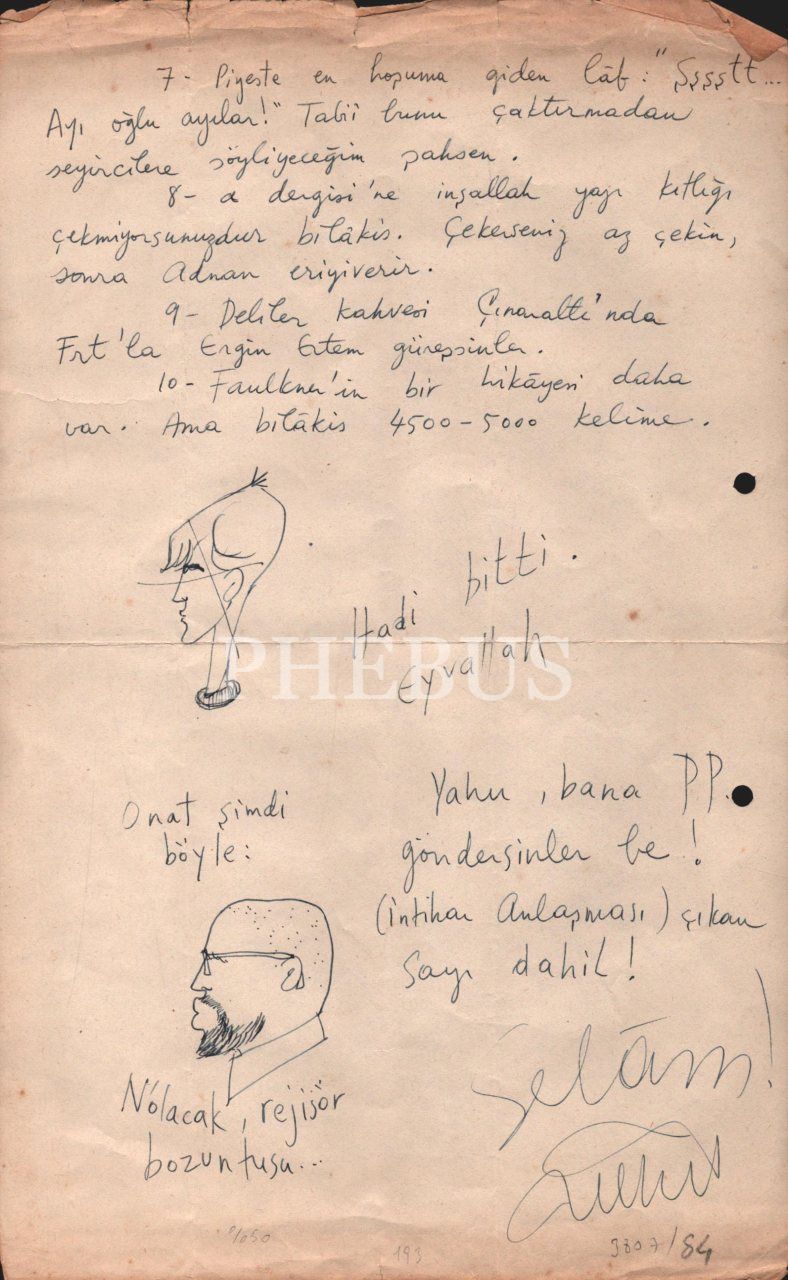 7- Piyeste en hoşuma giden lâf: "Şşşştt...
Ayı oğlu ayılar!" Tabiî bunu çaktırmadan
seyircilere söyliyeceğim şahsen.
8- a dergisi'ne inşallah yazı kıtlığı
çekmiyorsunuzdur bilâkis. Çekerseniz az çekin,
sonra Adnan eriyiverir.
9- Deliler kahvesi Çınaraltı'nda
Frt'la Ergin Ertem güreşsinler.
10- Faulkner'in bir hikâyesi daha
var. Ama bilâkis 4500-5000 kelime.
Hadi bitti.
Eyvallah
PHEBUS
Yahu, bana PP.
göndersinler be!
(İntihar Anlaşması) çıkan
sayı dahil!
Onat şimdi
böyle:
N'olacak, rejisör
bozuntusu...
Selâm!
%50
193
3807/84